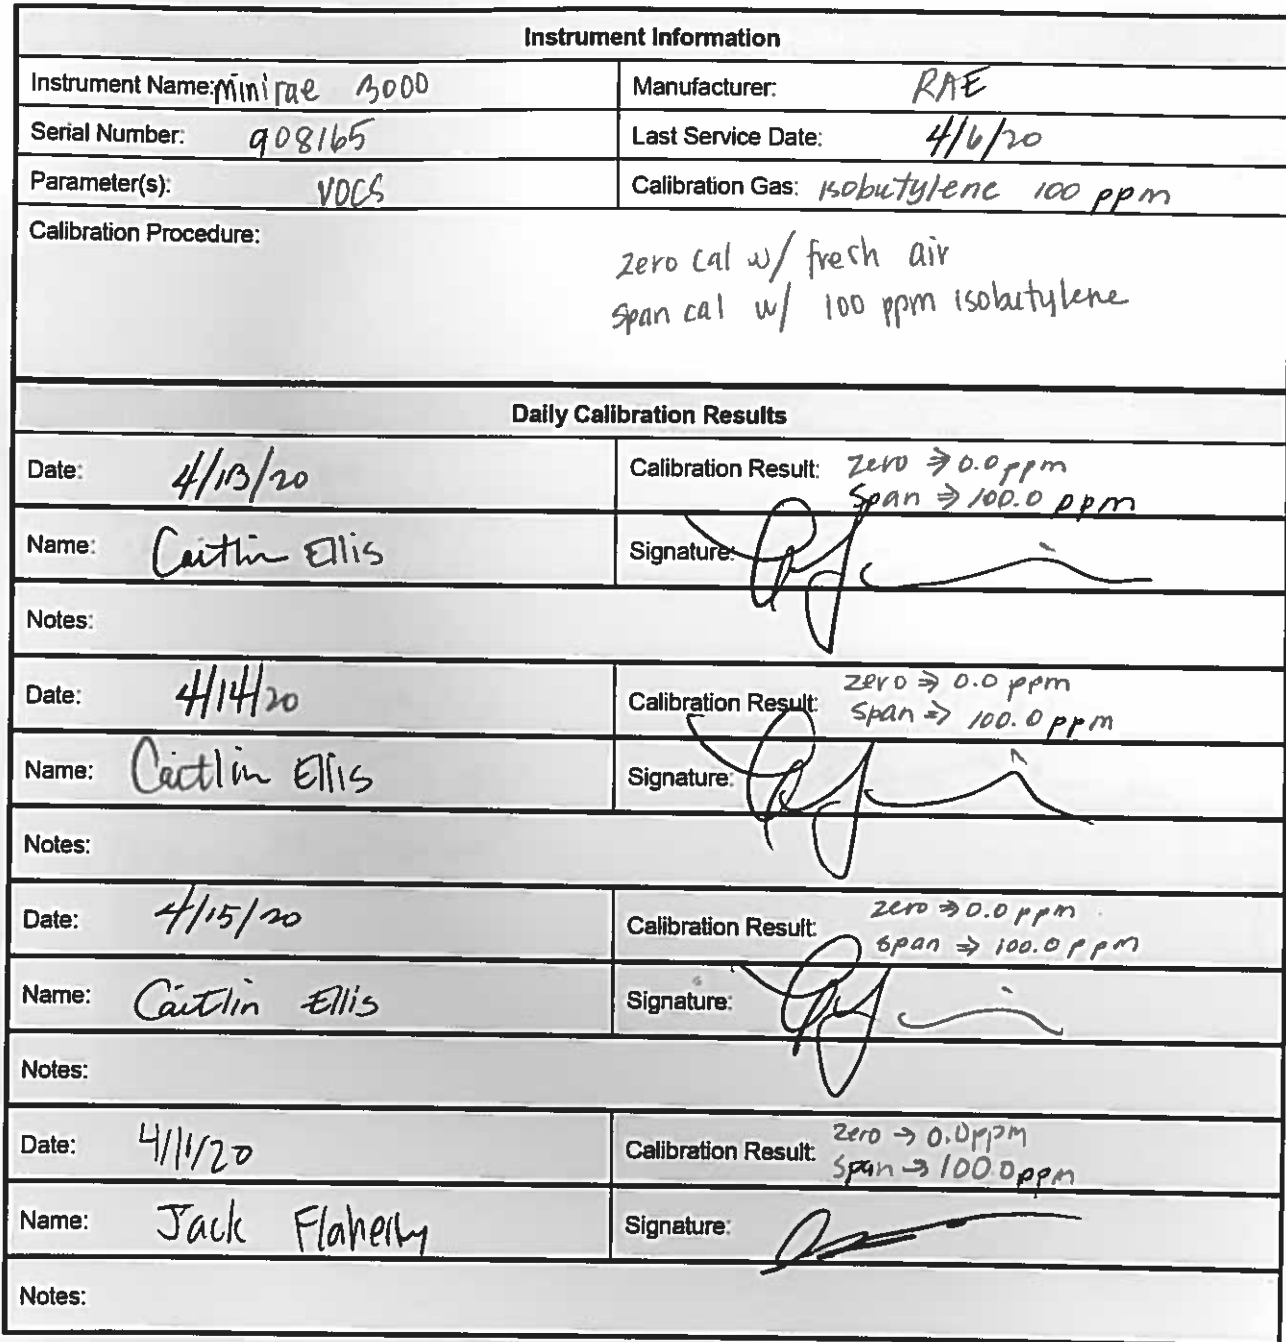 Instrument Information
Instrument Name: minirae 3000 Manufacturer: RAE
Serial Number: 908165 Last Service Date: 4/6/20
Parameter(s): VOCS Calibration Gas: isobutylene 100 ppm
Calibration Procedure:
zero cal w/ fresh air
span cal w/ 100 ppm isobutylene
Daily Calibration Results
Date: 4/13/20 Calibration Result: zero ⇒ 0.0 ppm
span ⇒ 100.0 ppm
Name: Caitlin Ellis Signature:
Notes:
Date: 4/14/20 Calibration Result: zero ⇒ 0.0 ppm
span ⇒ 100.0 ppm
Name: Caitlin Ellis Signature:
Notes:
Date: 4/15/20 Calibration Result: zero ⇒ 0.0 ppm
span ⇒ 100.0 ppm
Name: Caitlin Ellis Signature:
Notes:
Date: 4/11/20 Calibration Result: zero → 0.0ppm
span → 100.0ppm
Name: Jack Flaherty Signature:
Notes: